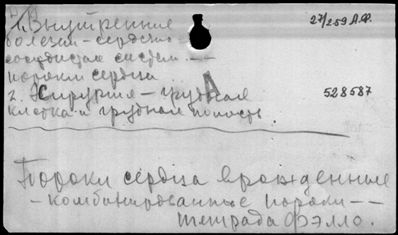 1. Внутренние
27/259 А.Ф.
болезни - сердечно-
сосудистая систем. --
пороки сердца
2. Хирургия - грудная
528587
клетка и грудная полость.
А
Пороки сердца врожденные
- комбинированные пороки --
тетрада Фэлло.